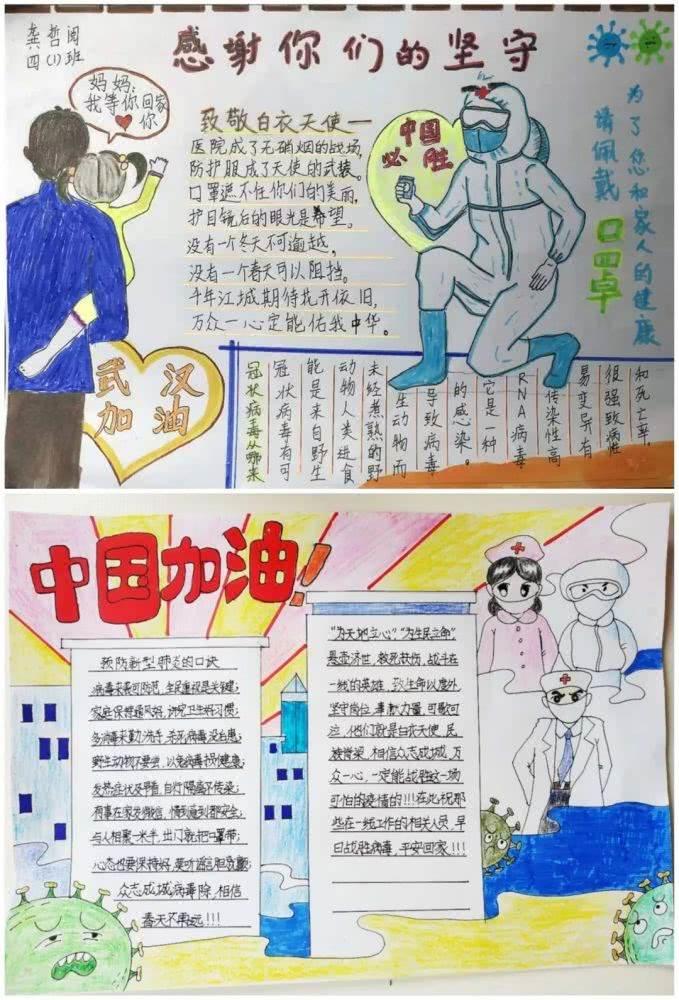 龚哲阅
四(1)班
感谢你们的坚守
妈妈:
我等你回家
你
致敬白衣天使一
医院成了无硝烟的战场,
防护服成了天使的武装。
口罩遮不住你们的美丽,
护目镜后的眼光是希望。
没有一个冬天不可逾越,
没有一个春天可以阻挡。
千年江城期待抚开依旧,
万众一心定能佑我中华。
中国
必胜
为了您和家人的健康
请佩戴
口罩
武汉
加油
冠状病毒从哪来
冠状病毒有可
能是来自野生
动物人类进食
未经煮熟的野
生动物而
导致病毒
的感染。
它是一种
RNA病毒
传染性高
易变异有
很强致病性
和死亡率。
中国加油!
预防新型肺炎的口诀
病毒来袭可防范,全民重视是关键;
家庭保持通风好,讲究卫生好习惯;
多消毒来勤洗手,杀死病毒没台患;
野生动物不要尝,以免病毒损健康;
发热症状及早看,自行隔离不传染;
有事在家发微信,情到意到都安全;
与人相聚一米手,出门就把口罩带;
心态也要保持好,莫听谣言胆負颤;
众志成城病毒除,相信
春天不再远!!!
“为天地立心”“为生民立命”
悬壶济世,救死扶伤,战斗在
一线的英雄,致生命以度外
坚守岗位,奉献力量,可歌可
泣,他们就是白衣天使,民
族脊梁,相信众志成城,万
众一心,一定能战胜这一场
可怕的疫情的!!!在此祝那
些在一线工作的相关人员,早
日战胜病毒,平安回家!!!